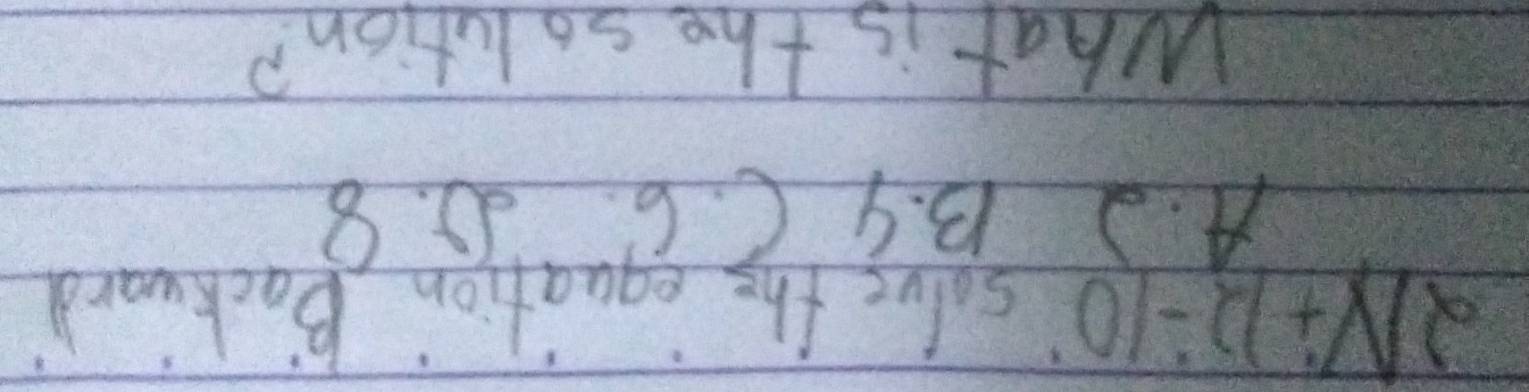 2N+12=10 solve the equation Backward
A.2 B.4 C.6. D.8
What is the solution?